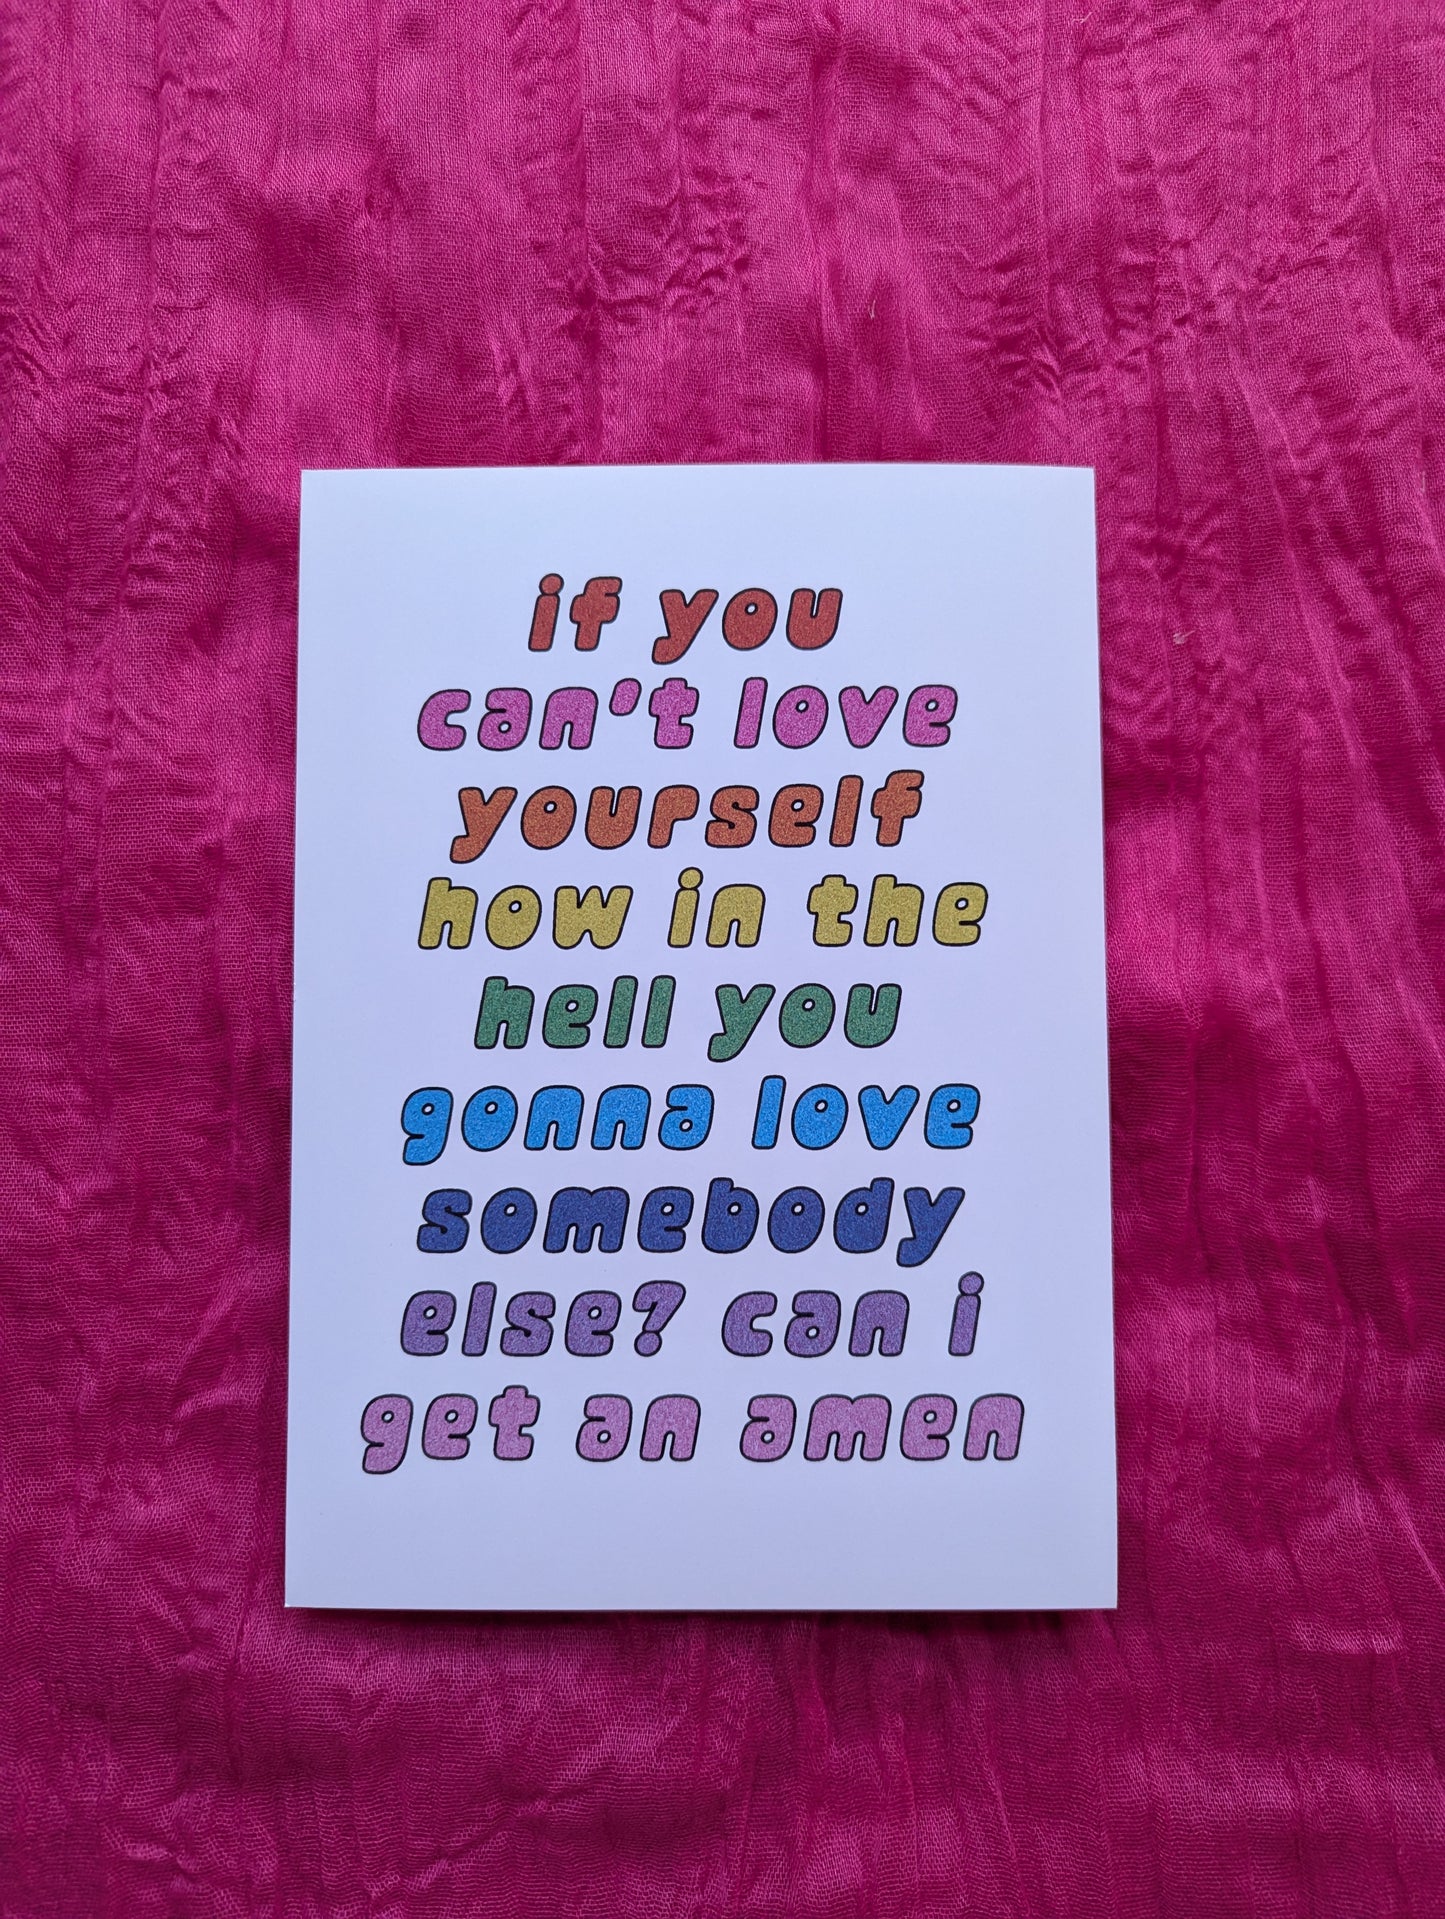 if you
can't love
yourself
how in the
hell you
gonna love
somebody
else? can i
get an amen